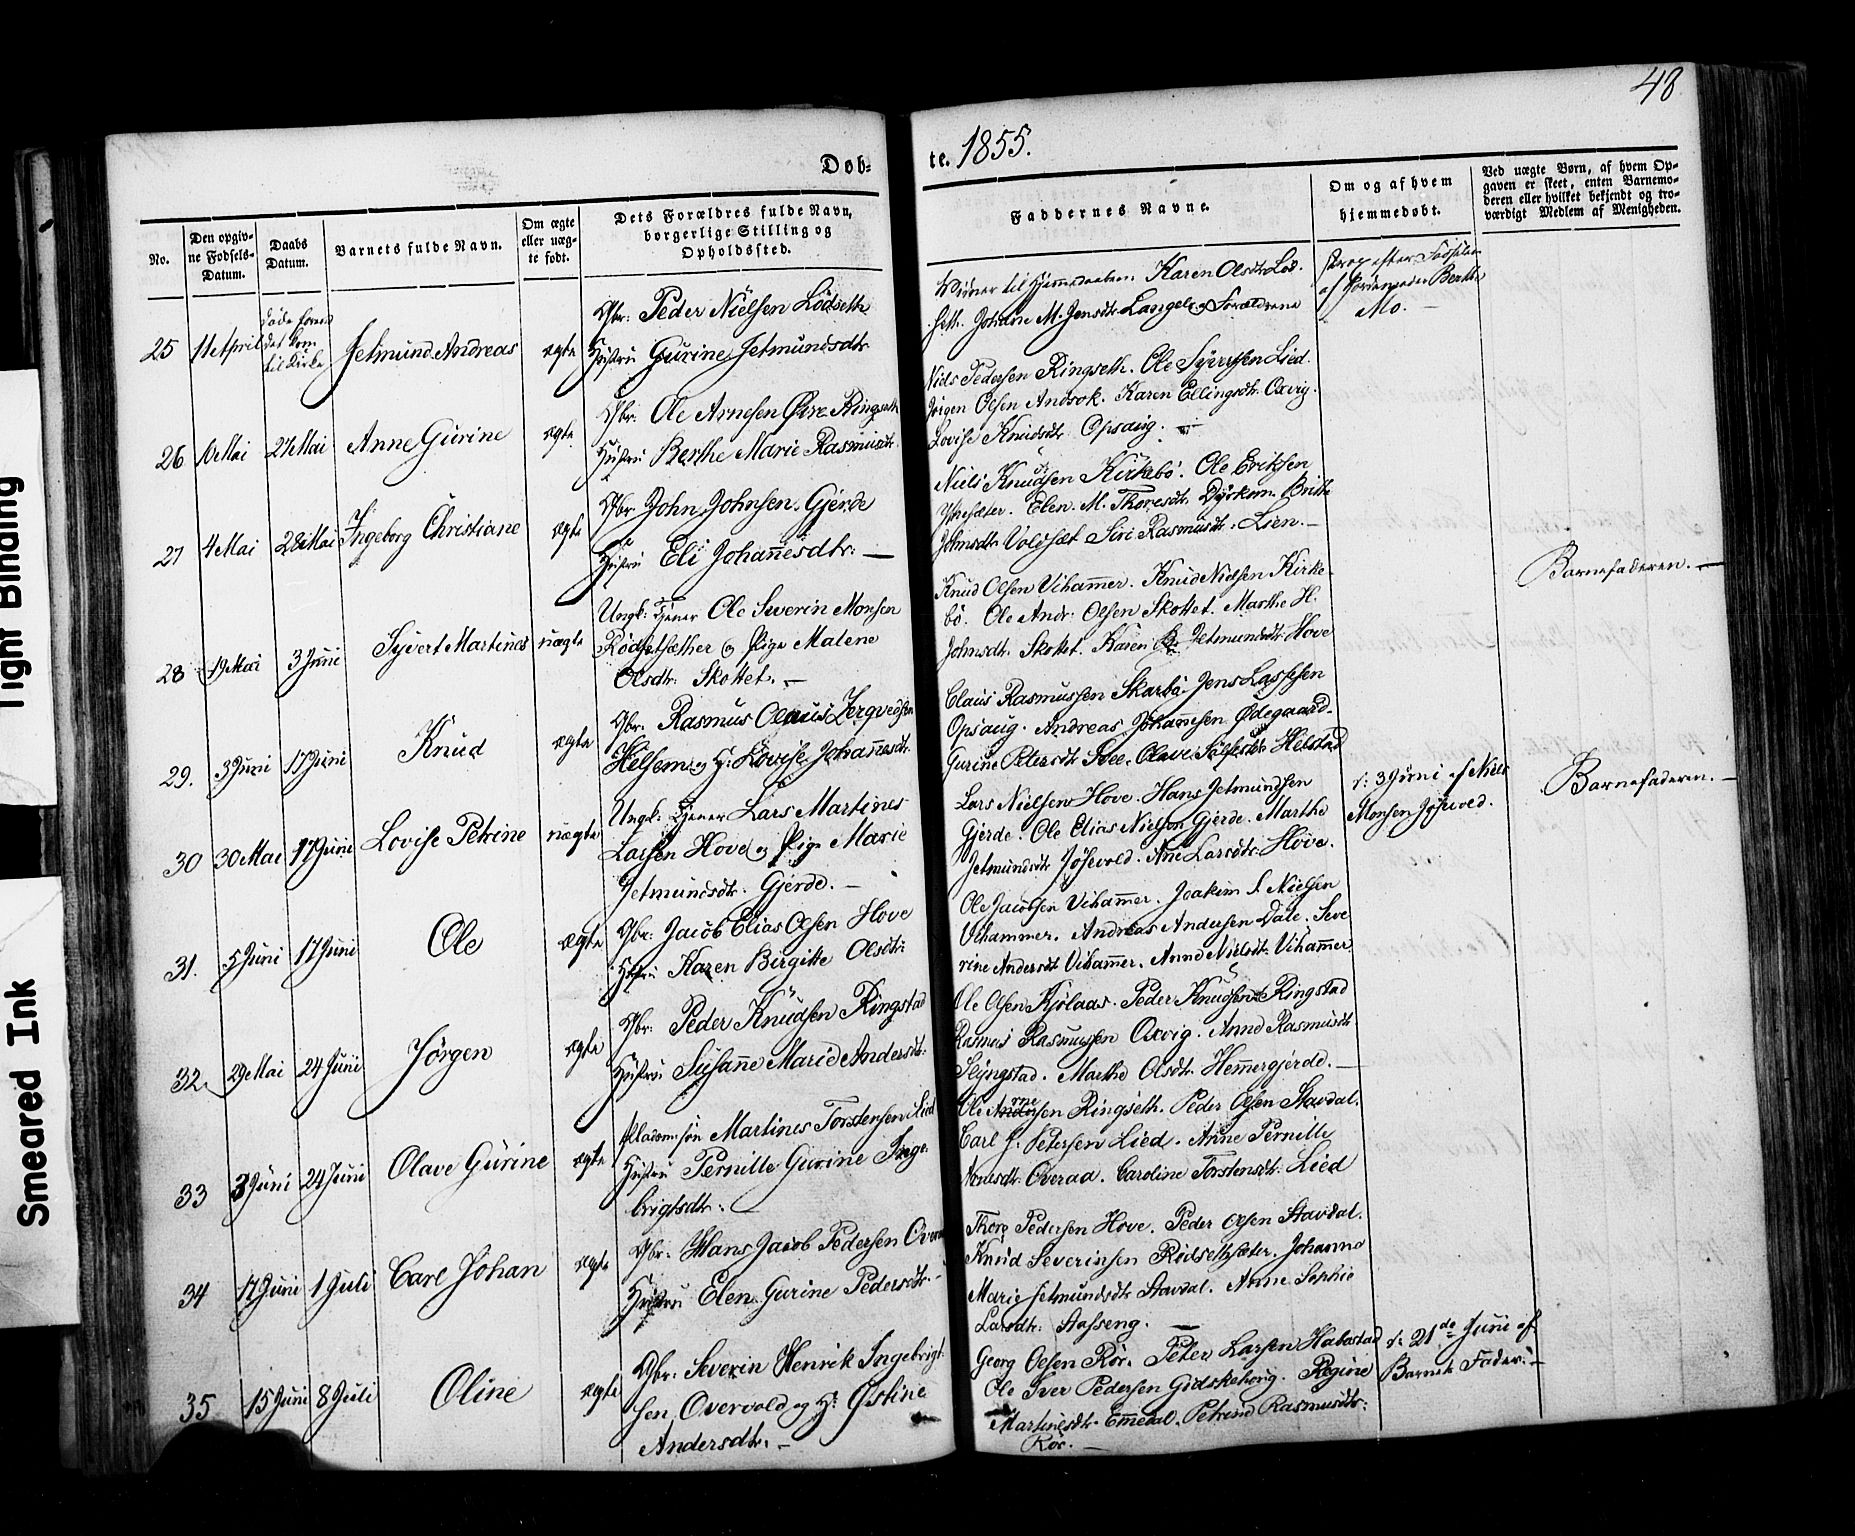 48
Døb-
te. 1855.
No.
Den opgiv-
ne Fødsels-
Datum.
Daabs
Datum.
Barnets fulde Navn.
Om ægte
eller uæg-
te født.
Dets Forældres fulde Navn,
borgerlige Stilling og
Opholdssted.
Faddernes Navne.
Om og af hvem
hjemmedøbt.
Ved uægte Børn, af hvem Op-
gaven er skeet, enten Barnemo-
deren eller hvilket bekjendt og tro-
værdigt Medlem af Menigheden.
25 11te April
døde forend
det kom
til Kirke
Jetmund Andreas
ægte
Gbr: Peder Nielsen Lødseth
Hustru Gurine Jetmundsdtr
Vidner til Hjemmedaaben: Karen Olsdtr Lød-
seth. Johane M. Jensdtr Langele og Forældrene
strax efter Fødselen
af Jordemoder Berthe
Mo. —
26 6 Mai 27 Mai Anne Gurine ægte
Gbr: Ole Arnesen Ringseth
Hustru Berthe Marie Rasmusdtr
Niels Pedersen Ringseth. Ole Syvertsen Lied.
Jørgen Olsen Andsok. Karen Ellingsdtr Oxvig.
Lovise Knudsdtr Opsaug. —
27 4 Mai 28 Mai Ingeborg Christiane ægte
Gbr John Johnsen Gjerde
Hustru Eli Johannesdtr: —
Niels Knudsen Kirkebø. Ole Eriksen
Elen M. Thoresdtr. Dyrkorn. Brithe
Johnsdtr Voldsæt Siri Rasmusdtr. Lien. —
28 19 Mai 3 Juni Syvert Martinus uægte
Ungk: Tjener Ole Severin Monsen
Rødsethsæther og Pige Malene
Olsdtr: Skottet. —
Knud Olsen Vihammer. Knud Nielsen Kirke-
bø. Ole Andr: Olsen Skottet. Marthe H.
Johnsdtr. Skottet. Karen Jetmundsdtr Hove
Barnefaderen. —
29. 3 Juni 17 Juni Knud ægte
Gbr: Rasmus Olaus
Helsem og H: Lovise Johannesdtr.
Claus Rasmussen Skarbø. Jens Lassesen
Opsaug. Andreas Johannesen Ødegaard.
Gurine Petersdtr Svee. Olave Helstad
30 30 Mai 17 Juni Lovise Petrine uægte
Ungk: Tjener Lars Martinus
Larsen Hove og Pige Marie
Jetmundsdtr. Gjerde. —
Lars Nielsen Hove. Hans Jetmundsen
Gjerde. Ole Elias Nielsen Gjerde. Marthe
Jetmundsdtr Jøsevold. Ane Larsdtr. Hove.
d: 3 Juni af Niels
Monsen Jøsevold.
Barnefaderen. —
31. 5 Juni 17 Juni Ole ægte
Gbr: Jacob Elias Olsen Hove
Hustru Karen Birgitte Olsdtr:
Ole Jacobsen Vihammer. Joakim S. Nielsen
Vihammer. Andreas Andersen Dale. Seve
rine Andersdtr Vihammer. Anne Nielsdtr. Vihammer
32. 29 Mai 24 Juni Jørgen ægte
Gbr: Peder Knudsen Ringstad
Hustru Susanne Marie Andersdtr.
Ole Olsen Kjølaas. Peder Knudsen Ringstad
Rasmus Rasmussen Oxvig. Anne Rasmusdtr
Slyngstad. Marthe Olsdtr. Hemmergjerde. —
33 3 Juni 24 Juni Olave Gurine ægte
Martinus Torstensen Lied
Hustru Pernille Gurine Inge-
brigtsdtr: —
Ole Arnesen Ringseth. Peder Olsen Stavdal.
Carl J: Petersen Lied. Anne Pernille
Arnesdtr. Overaa. Caroline Torstensdtr. Lied
34 17 Juni 1 Juli Carl Johan ægte
Gbr: Hans Jacob Pedersen
Hustru Elen Gurine Pedersdtr. —
Thore Pedersen Hove. Peder Olsen Stavdal.
Knud Severinsen Rødsethsæter. Johanne
Marie Jetmundsdtr Stavdal. Anne Sophie
Larsdtr: Stafseng. —
35 15 Juni 8 Juli Oline ægte
Gbr: Severin Henrik Ingebrigt-
sen Overvold og H: Østine
Andersdtr. —
Georg Olsen Rør. Peter Larsen Habostad
Ole Iver Pedersen Gidskehoug. Regine
Martinusdtr Emmedal. Petrine Rasmusdtr.
Rør. —
d: 21de Juni af
Barnets Fader. —
Tight Binding
Smeared Ink